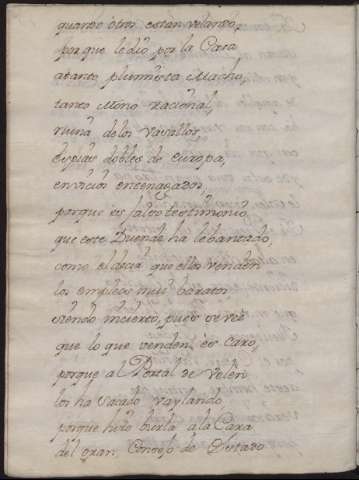 quando otros estan velando,
porque le dio por la Cara
a tanto plumista Macho,
tanto Mono racional,
ruina de los vasallos,
espias dobles de europa,
en vicios
porque es falso testimonio
que este Duende ha lebantado,
como el decir que ellos venden
los empleos mui baratos
siendo incierto, pues se vee
que lo que venden, es caro,
porque al Portal de
los ha sacado vaylando
porque hizo burla a la Cara
del gran Consejo de Estado